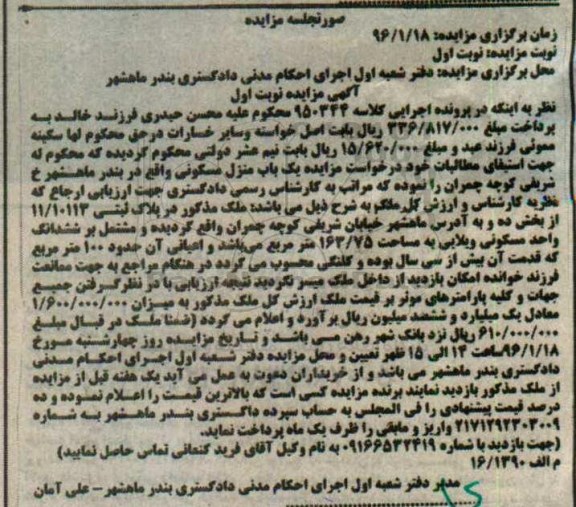 صورتجلسه مزایده
زمان برگزاری مزایده: ۹۶/۱/۱۸
نوبت مزایده: نوبت اول
محل برگزاری مزایده: دفتر شعبه اول اجرای احکام مدنی دادگستری بندر ماهشهر
آگهی مزایده نوبت اول
نظر به اینکه در پرونده اجرایی کلاسه ۹۵۰۳۴۴ محکوم علیه محسن حیدری فرزند خالد به
پرداخت مبلغ ۳۳۶/۸۱۷/۰۰۰ ریال بابت اصل خواسته وسایر خسارات درحق محکوم لها سکینه
مموئی فرزند عبد و مبلغ ۱۵/۶۲۰/۰۰۰ ریال بابت نیم عشر دولتی محکوم گردیده که محکوم له
جهت استیفای مطالبات خود درخواست مزایده یک باب منزل مسکونی واقع در بندر ماهشهر خ
شریفی کوچه چمران را نموده که مراتب به کارشناس رسمی دادگستری جهت ارزیابی ارجاع که
نظریه کارشناس و ارزش کل ملک به شرح ذیل می باشد: ملک مذکور در پلاک ثبتی ۱۱/۱۰۱۱۳
از بخش ده و به آدرس ماهشهر خیابان شریفی کوچه چمران واقع گردیده و مشتمل بر ششدانگ
واحد مسکونی ویلایی به مساحت ۱۶۳/۷۵ متر مربع می‌باشد و اعیانی آن حدود ۱۰۰ متر مربع
که قدمت آن بیش از سی سال بوده و کلنگی محسوب می گردد در هنگام مراجع به جهت ممانعت
فرزند خوانده امکان بازدید از داخل ملک میسر نگردید نتیجه ارزیابی با در نظرگرفتن جمیع
جهات و کلیه پارامترهای موثر بر قیمت ملک ارزش کل ملک مذکور به میزان ۱/۶۰۰/۰۰۰/۰۰۰
معادل یک میلیارد و ششصد میلیون ریال برآورد و اعلام می گردد (ضمنا ملک در قبال مبلغ
۶۱۰/۰۰۰/۰۰۰ ریال نزد بانک شهر رهن می باشد و تاریخ مزایده روز چهارشنبه مورخ
۹۶/۱/۱۸ساعت ۱۴ الی ۱۵ ظهر تعیین و محل مزایده دفتر شعبه اول اجرای احکام مدنی
دادگستری بندر ماهشهر می باشد و از خریداران دعوت به عمل می آید یک هفته قبل از مزایده
از ملک مذکور بازدید نمایند برنده مزایده کسی است که بالاترین قیمت را اعلام نموده و ده
درصد قیمت پیشنهادی را فی المجلس به حساب سپرده داگستری بندر ماهشهر به شماره
۲۱۷۱۲۹۲۳۰۳۰۰۹ واریز و مابقی را ظرف یک ماه پرداخت نماید.
(جهت بازدید با شماره ۰۹۱۶۶۵۳۲۴۱۹ به نام وکیل آقای فرید کنعانی تماس حاصل نمایید)
م الف ۱۶/۱۳۹۰
مدیر دفتر شعبه اول اجرای احکام مدنی دادگستری بندر ماهشهر – علی آمان